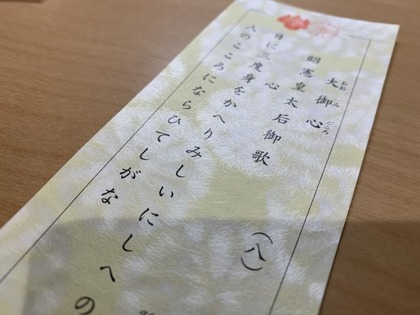 大御心 (八)
昭憲皇太后御歌
心
日に三度身をかへりみしいにしへの
人のこころにならひてしがな